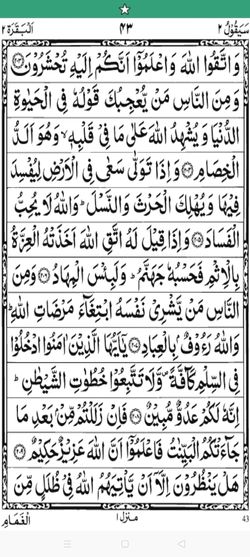 سَيَقُوْلُ ٢ ٤٣ اَلْبَقَرَة ٢
وَ اتَّقُوا اللّٰهَ وَ اعْلَمُوْۤا اَنَّكُمْ اِلَيْهِ تُحْشَرُوْنَ ﴿٢٠٣﴾
وَ مِنَ النَّاسِ مَنْ يُّعْجِبُكَ قَوْلُهٗ فِي الْحَيٰوةِ
الدُّنْيَا وَ يُشْهِدُ اللّٰهَ عَلٰى مَا فِيْ قَلْبِهٖ ۙ وَ هُوَ اَلَدُّ
الْخِصَامِ ﴿٢٠٤﴾ وَ اِذَا تَوَلّٰى سَعٰى فِي الْاَرْضِ لِيُفْسِدَ
فِيْهَا وَ يُهْلِكَ الْحَرْثَ وَ النَّسْلَ ؕ وَ اللّٰهُ لَا يُحِبُّ
الْفَسَادَ ﴿٢٠٥﴾ وَ اِذَا قِيْلَ لَهُ اتَّقِ اللّٰهَ اَخَذَتْهُ الْعِزَّةُ
بِالْاِثْمِ فَحَسْبُهٗ جَهَنَّمُ ؕ وَ لَبِئْسَ الْمِهَادُ ﴿٢٠٦﴾ وَ مِنَ
النَّاسِ مَنْ يَّشْرِيْ نَفْسَهُ ابْتِغَآءَ مَرْضَاتِ اللّٰهِ ؕ
وَ اللّٰهُ رَءُوْفٌۢ بِالْعِبَادِ ﴿٢٠٧﴾ يٰۤاَيُّهَا الَّذِيْنَ اٰمَنُوا ادْخُلُوْا
فِي السِّلْمِ كَآفَّةً ۪ وَ لَا تَتَّبِعُوْا خُطُوٰتِ الشَّيْطٰنِ ؕ
اِنَّهٗ لَكُمْ عَدُوٌّ مُّبِيْنٌ ﴿٢٠٨﴾ فَاِنْ زَلَلْتُمْ مِّنْۢ بَعْدِ مَا
جَآءَتْكُمُ الْبَيِّنٰتُ فَاعْلَمُوْۤا اَنَّ اللّٰهَ عَزِيْزٌ حَكِيْمٌ ﴿٢٠٩﴾
هَلْ يَنْظُرُوْنَ اِلَّاۤ اَنْ يَّاْتِيَهُمُ اللّٰهُ فِيْ ظُلَلٍ مِّنَ
الْغَمَامِ منزل ١ 43